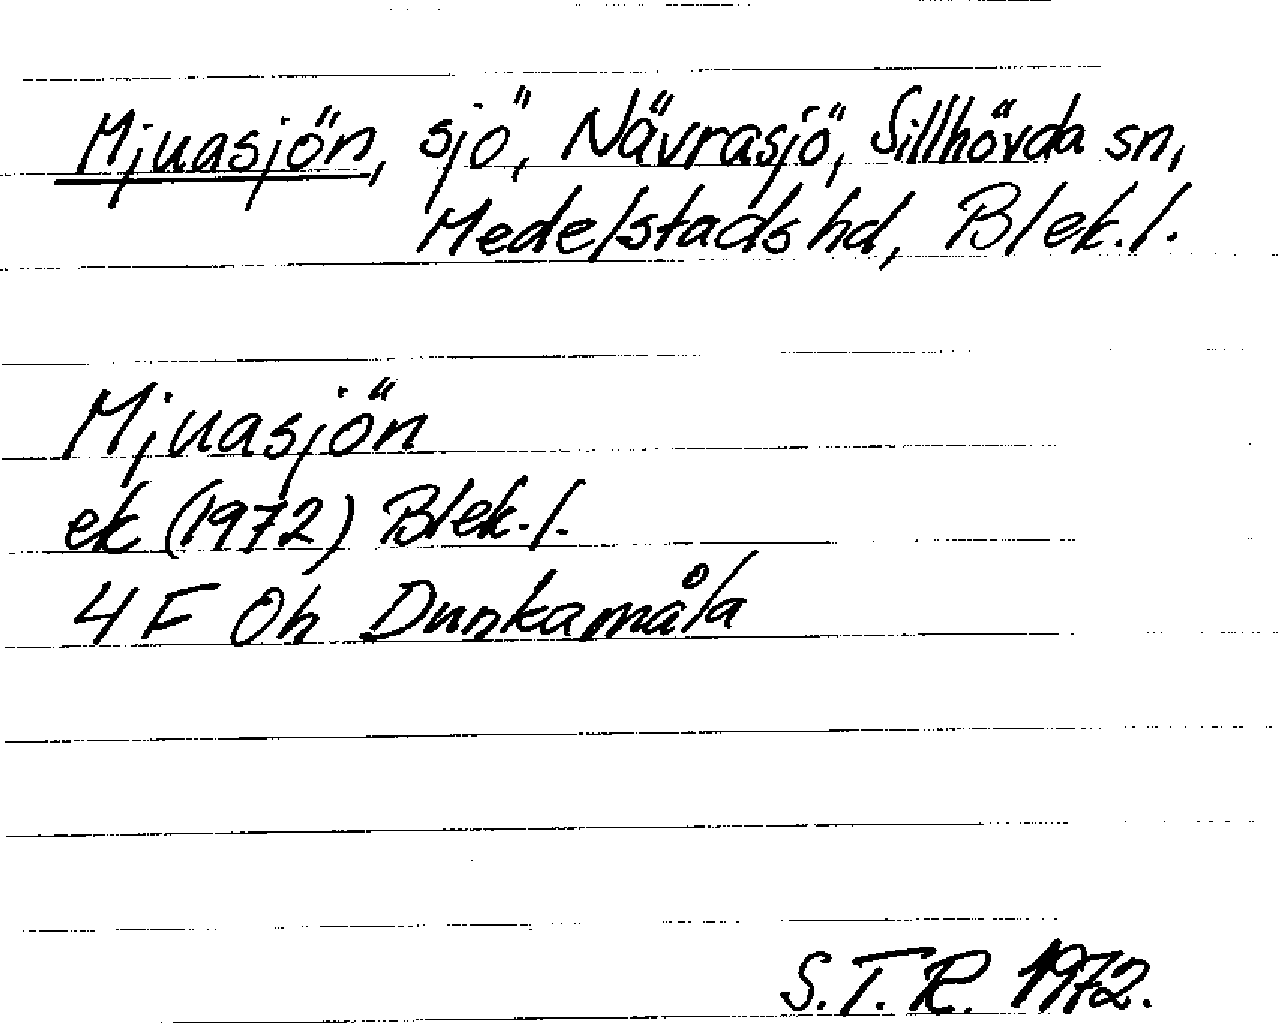 Mjuasjön, sjö, Nävrasjö, Sillhövda sn,
Medelstads hd, Blek. l.
Mjuasjön
ek (1972) Blek. l.
4 F Oh Dunkamåla
S.T.R. 1972.